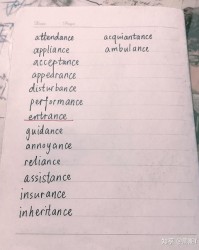 attendance
appliance
acceptance
appearance
disturbance
performance
entrance
guidance
annoyance
reliance
assistance
insurance
inheritance
acquaintance
ambulance